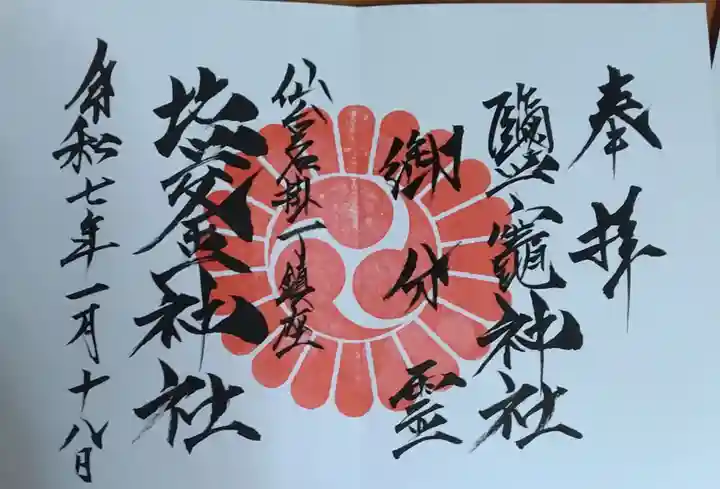 奉拝
鹽竈神社
御分霊
仙台名掛丁鎮座
地愛宕神社
令和七年一月十八日